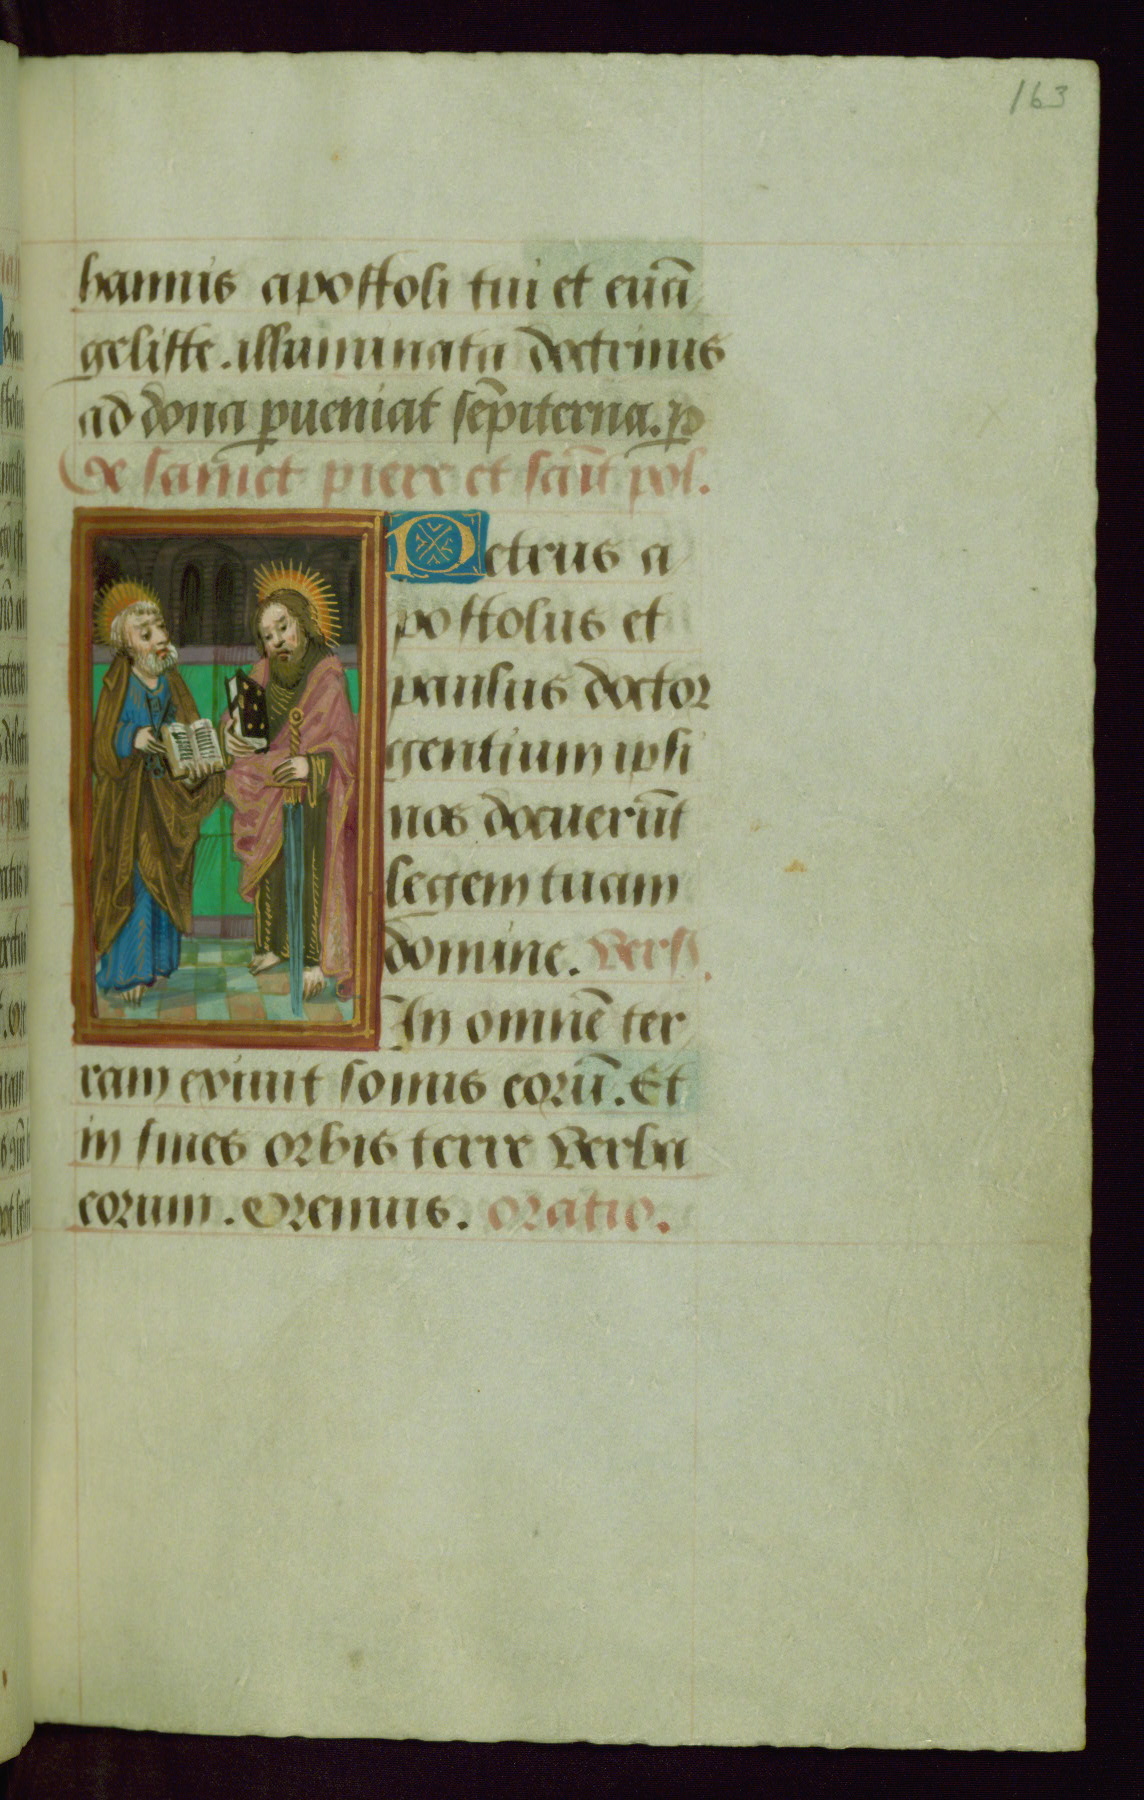 163
hannis apostoli tui et euā
geliste. illuminata doctrinis
ad dona ꝑueniat sēpiterna. p
De sainct piere et saīt pol.
Petrus a
postolus et
paulus doctor
gentium ipsi
nos docuerūt
legem tuam
domine. Vers.
In omnē ter
ram exiuit sonus eorū. Et
in fines orbis terre verba
eorum. Oremus. oratio.